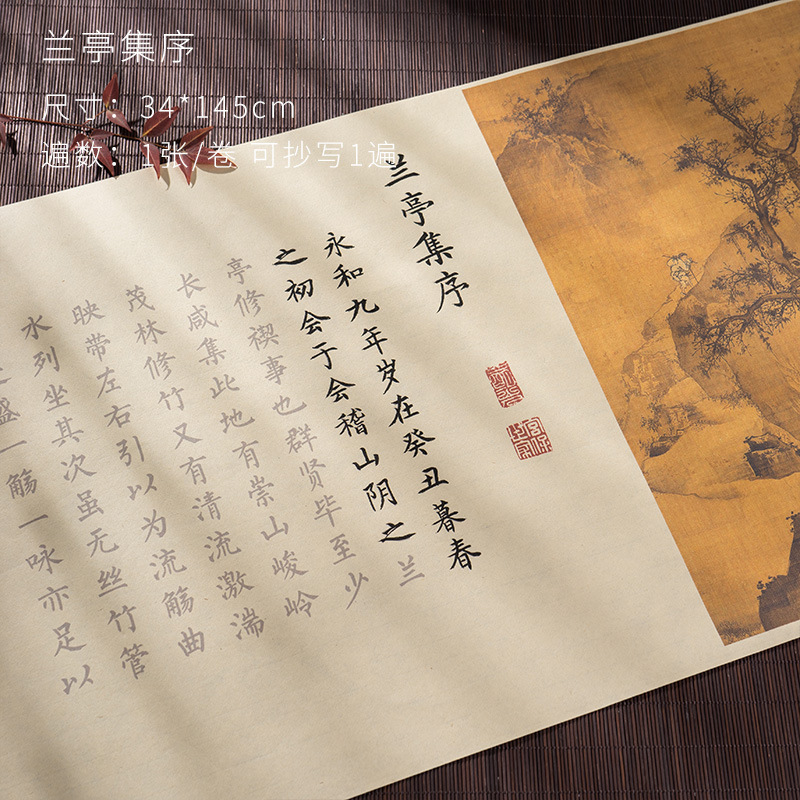 兰亭集序
尺寸：34*145cm
遍数：1张/卷 可抄写1遍
兰亭集序
永和九年岁在癸丑暮春
之初会于会稽山阴之兰
亭修禊事也群贤毕至少
长咸集此地有崇山峻岭
茂林修竹又有清流激湍
映带左右引以为流觞曲
水列坐其次虽无丝竹管
盛一觞一咏亦足以